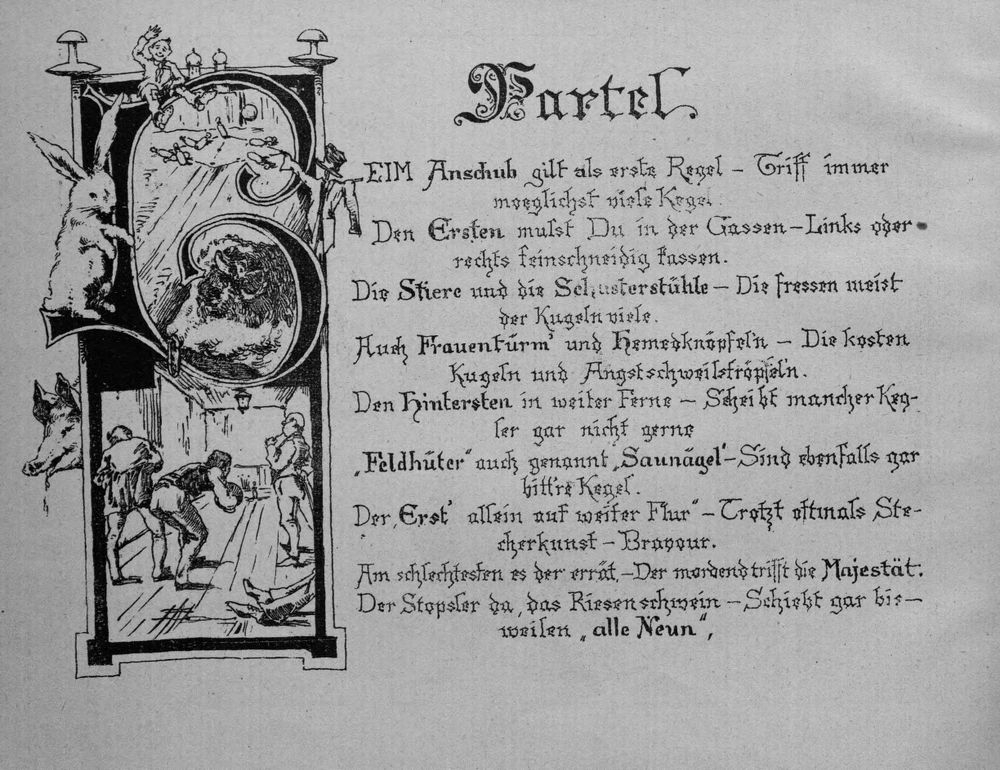 Partel.
BEIM Anschub gilt als erste Regel – Triff immer
moeglichst viele Kegel.
Den Ersten mußt Du in der Gassen – Links oder
rechts feinschneidig fassen.
Die Stiere und die Schusterstühle – Die fressen meist
der Kugeln viele.
Auch Frauentürm' und Hemedknöpfel'n – Die kosten
Kugeln und Angstschweißtröpfel'n.
Den Hintersten in weiter Ferne – Scheibt mancher Keg-
ler gar nicht gerne
„Feldhüter" auch genannt „Saunägel" – Sind ebenfalls gar
bitt're Kegel.
Der „Erst' allein auf weiter Flur" – Trotzt oftmals Ste-
cherkunst – Bravour.
Am schlechtesten es der errät, – Der mordend trifft die Majestät.
Der Stopsler da, das Riesenschwein – Schiebt gar bis –
weilen „alle Neun",